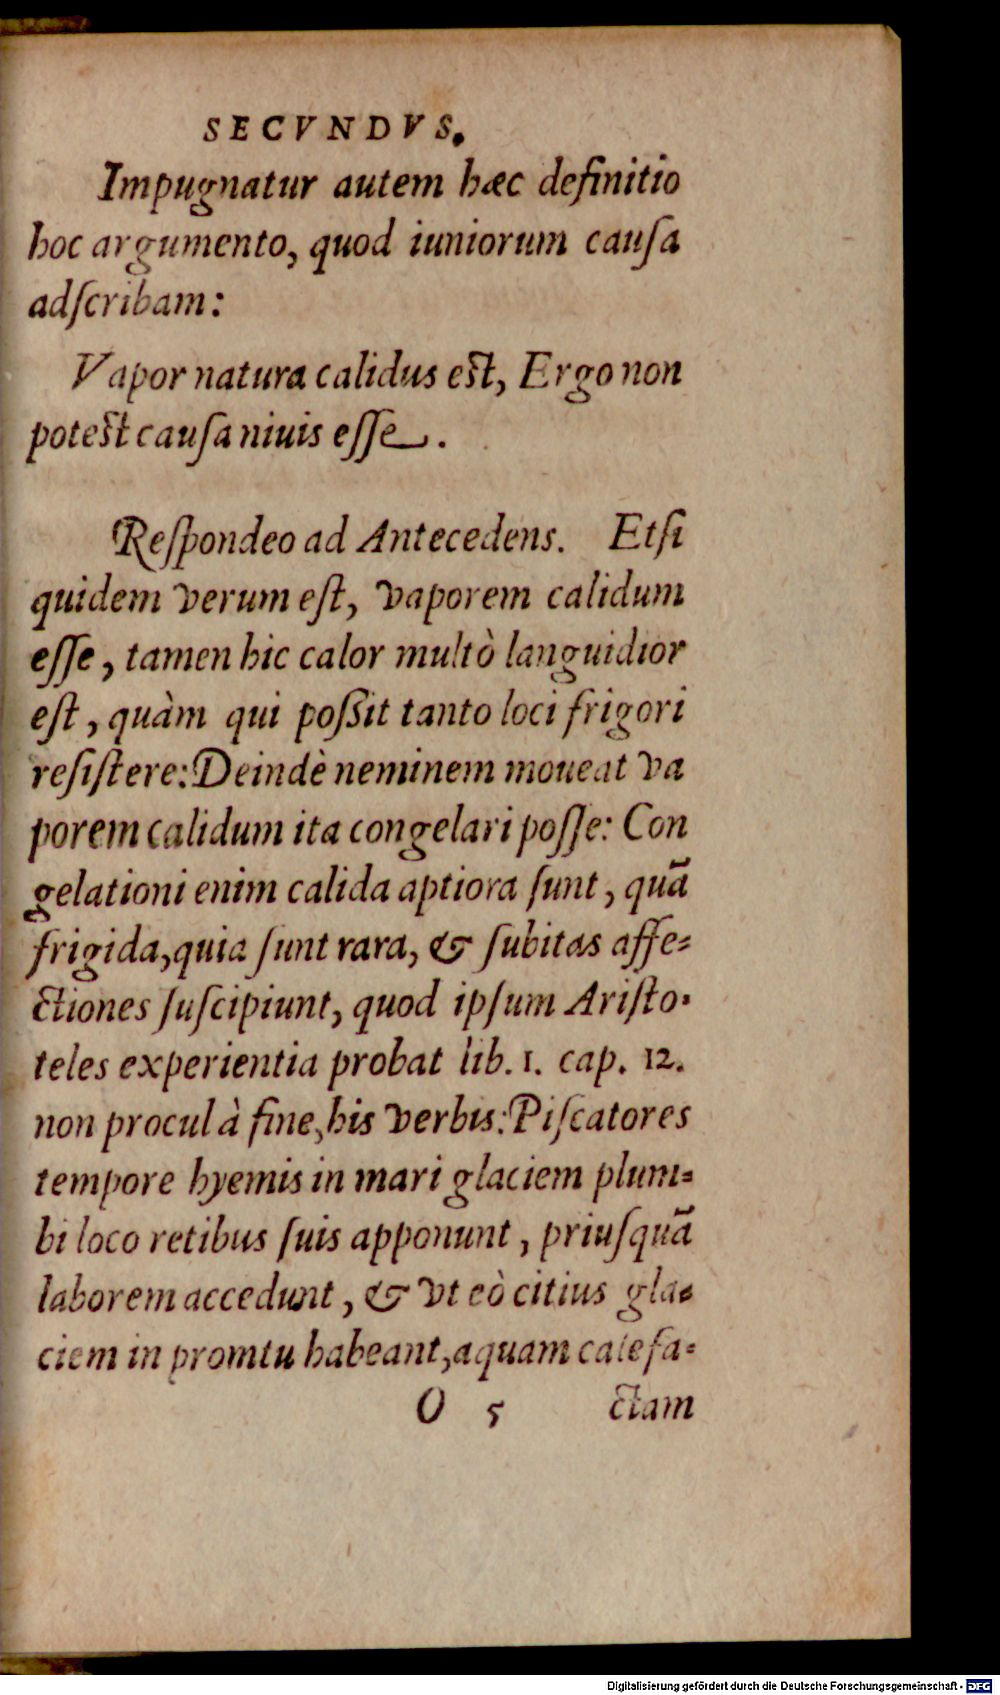 SECVNDVS.
Impugnatur autem hæc definitio
hoc argumento, quod iuniorum cauſa
adſcribam:
Vapor natura calidus eſt, Ergo non
poteſt cauſa niuis eſſe.
Reſpondeo ad Antecedens. Etſi
quidem verum eſt, vaporem calidum
eſſe, tamen hic calor multò languidior
eſt, quàm qui poſsit tanto loci frigori
reſiſtere: Deindè neminem moueat va
porem calidum ita congelari poſſe: Con
gelationi enim calida aptiora ſunt, quã
frigida, quia ſunt rara, & ſubitas affe-
ctiones ſuſcipiunt, quod ipſum Ariſto-
teles experientia probat lib. 1. cap. 12.
non procul à fine, his verbis: Piſcatores
tempore hyemis in mari glaciem plum-
bi loco retibus ſuis apponunt, priuſquã
laborem accedunt, & vt eò citius gla-
ciem in promtu habeant, aquam calefa-
O 5 ctam
Digitalisierung gefördert durch die Deutsche Forschungsgemeinschaft - DFG